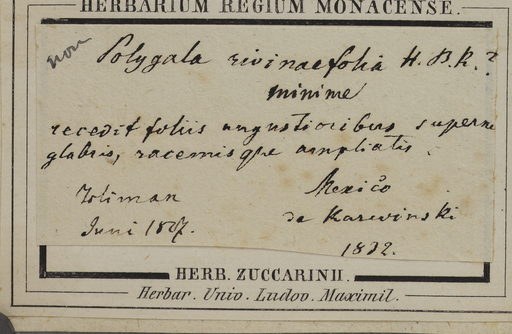 HERBARIUM REGIUM MONACENSE.
non
Polygala rivinaefolia H. B. K. ?
minime
recedit foliis angustioribus superne
glabris, racemisque ampliatis.
Mexico
Juni 1827.
de Karwinski
1832.
HERB. ZUCCARINII.
Herbar. Univ. Ludov. Maximil.